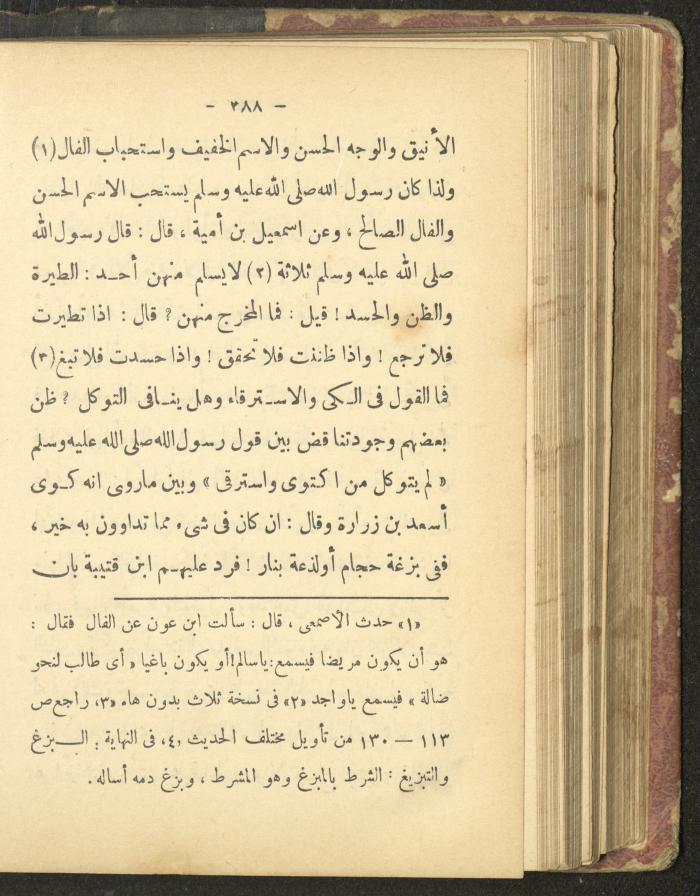 - ٣٨٨ -
الأنيق والوجه الحسن والاسم الخفيف واستحباب الفال (١)
ولذا كان رسول الله صلى الله عليه وسلم يستحب الاسم الحسن
والفال الصالح ، وعن اسمعيل بن أمية ، قال : قال رسول الله
صلى الله عليه وسلم ثلاثة (٢) لايسلم منهن أحد : الطيرة
والظن والحسد ! قيل : فما المخرج منهن ? قال : اذا تطيرت
فلا ترجع ! واذا ظننت فلا تحقق ! واذا حسدت فلا تبغ (٣)
فما القول فى الكى والاسترقاء وهل ينافى التوكل ? ظن
بعضهم وجود تناقض بين قول رسول الله صلى الله عليه وسلم
« لم يتوكل من اكتوى واسترقى » وبين ماروى انه كوى
أسعد بن زرارة وقال : ان كان فى شىء مما تداوون به خير ،
ففى بزغة حجام أولذعة بنار ! فرد عليهم ابن قتيبة بان
«١» حدث الأصمعى ، قال : سألت ابن عون عن الفال فقال :
هو أن يكون مريضا فيسمع : ياسالم! أو يكون باغيا « أى طالب لنحو
ضالة » فيسمع ياواجد «٢» فى نسخة ثلاث بدون هاء «٣» راجع ص
١١٣ — ١٣٠ من تأويل مختلف الحديث «٤» فى النهاية : البزغ
والتبزيغ : الشرط بالمبزغ وهو المشرط ، وبزغ دمه أساله .